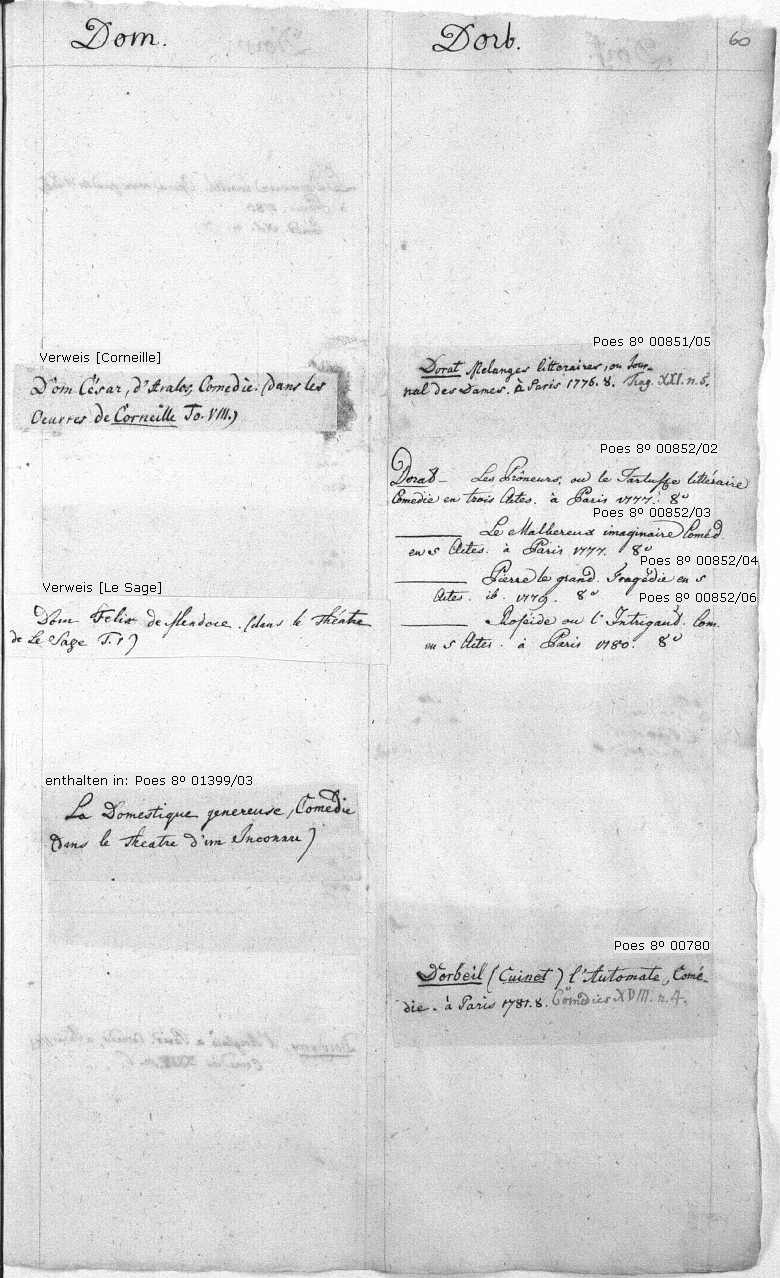 Dom.
Verweis [Corneille]
Dom César, d'Avalos, Comedie. (dans les
Oeuvres de Corneille To. VIII.)
Verweis [Le Sage]
Dom Felix de Mendoce. (dans le Théatre
de Le Sage T. 1)
enthalten in: Poes 8º 01399/03
La Domestique genereuse, Comedie
(dans le Theatre d'un Inconnu)
Dorb.
60
Poes 8º 00851/05
Dorat Melanges litteraires, ou Jour-
nal des Dames. à Paris 1776. 8. Trag. XXI. n. 5.
Poes 8º 00852/02
Dorat — Les Prôneurs, ou le Tartuffe littéraire
Comedie en trois Actes. à Paris 1777. 8º
Poes 8º 00852/03
Le Malhereux imaginaire Coméd.
en 5 Actes. à Paris 1777. 8º
Poes 8º 00852/04
Pierre le grand. Tragédie en 5
Actes. ib. 1779. 8º
Poes 8º 00852/06
Roseide ou l'Intrigant. Com.
en 5 Actes. à Paris 1780. 8º
Poes 8º 00780
Dorbeil (Cuinet) l'Automate, Comé-
die. à Paris 1781. 8. Comedies XVIII. n. 4.